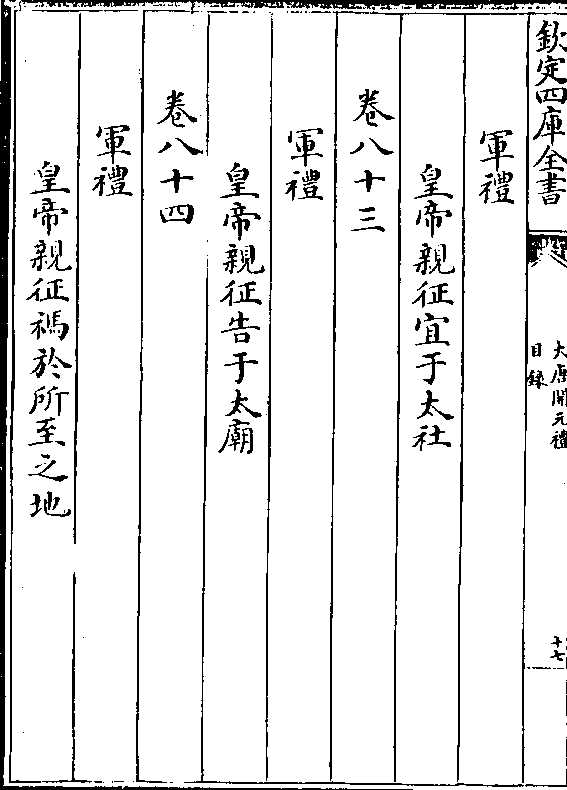 欽定四庫全書
大唐開元禮
目錄
十七
軍禮
皇帝親征宜于太社
卷八十三
軍禮
皇帝親征告于太廟
卷八十四
軍禮
皇帝親征禡於所至之地